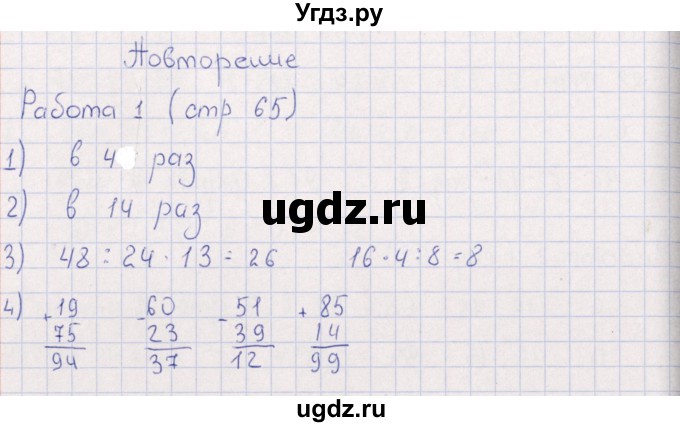 Угдз.ру
Повторение
Работа 1 (стр 65)
1) в 4 раз
2) в 14 раз
ugdz.ru
3) 48 : 24 · 13 = 26 16 · 4 : 8 = 8
4) + 19 - 60 - 51 + 85
75 23 39 14
94 37 12 99
ugdz.ru